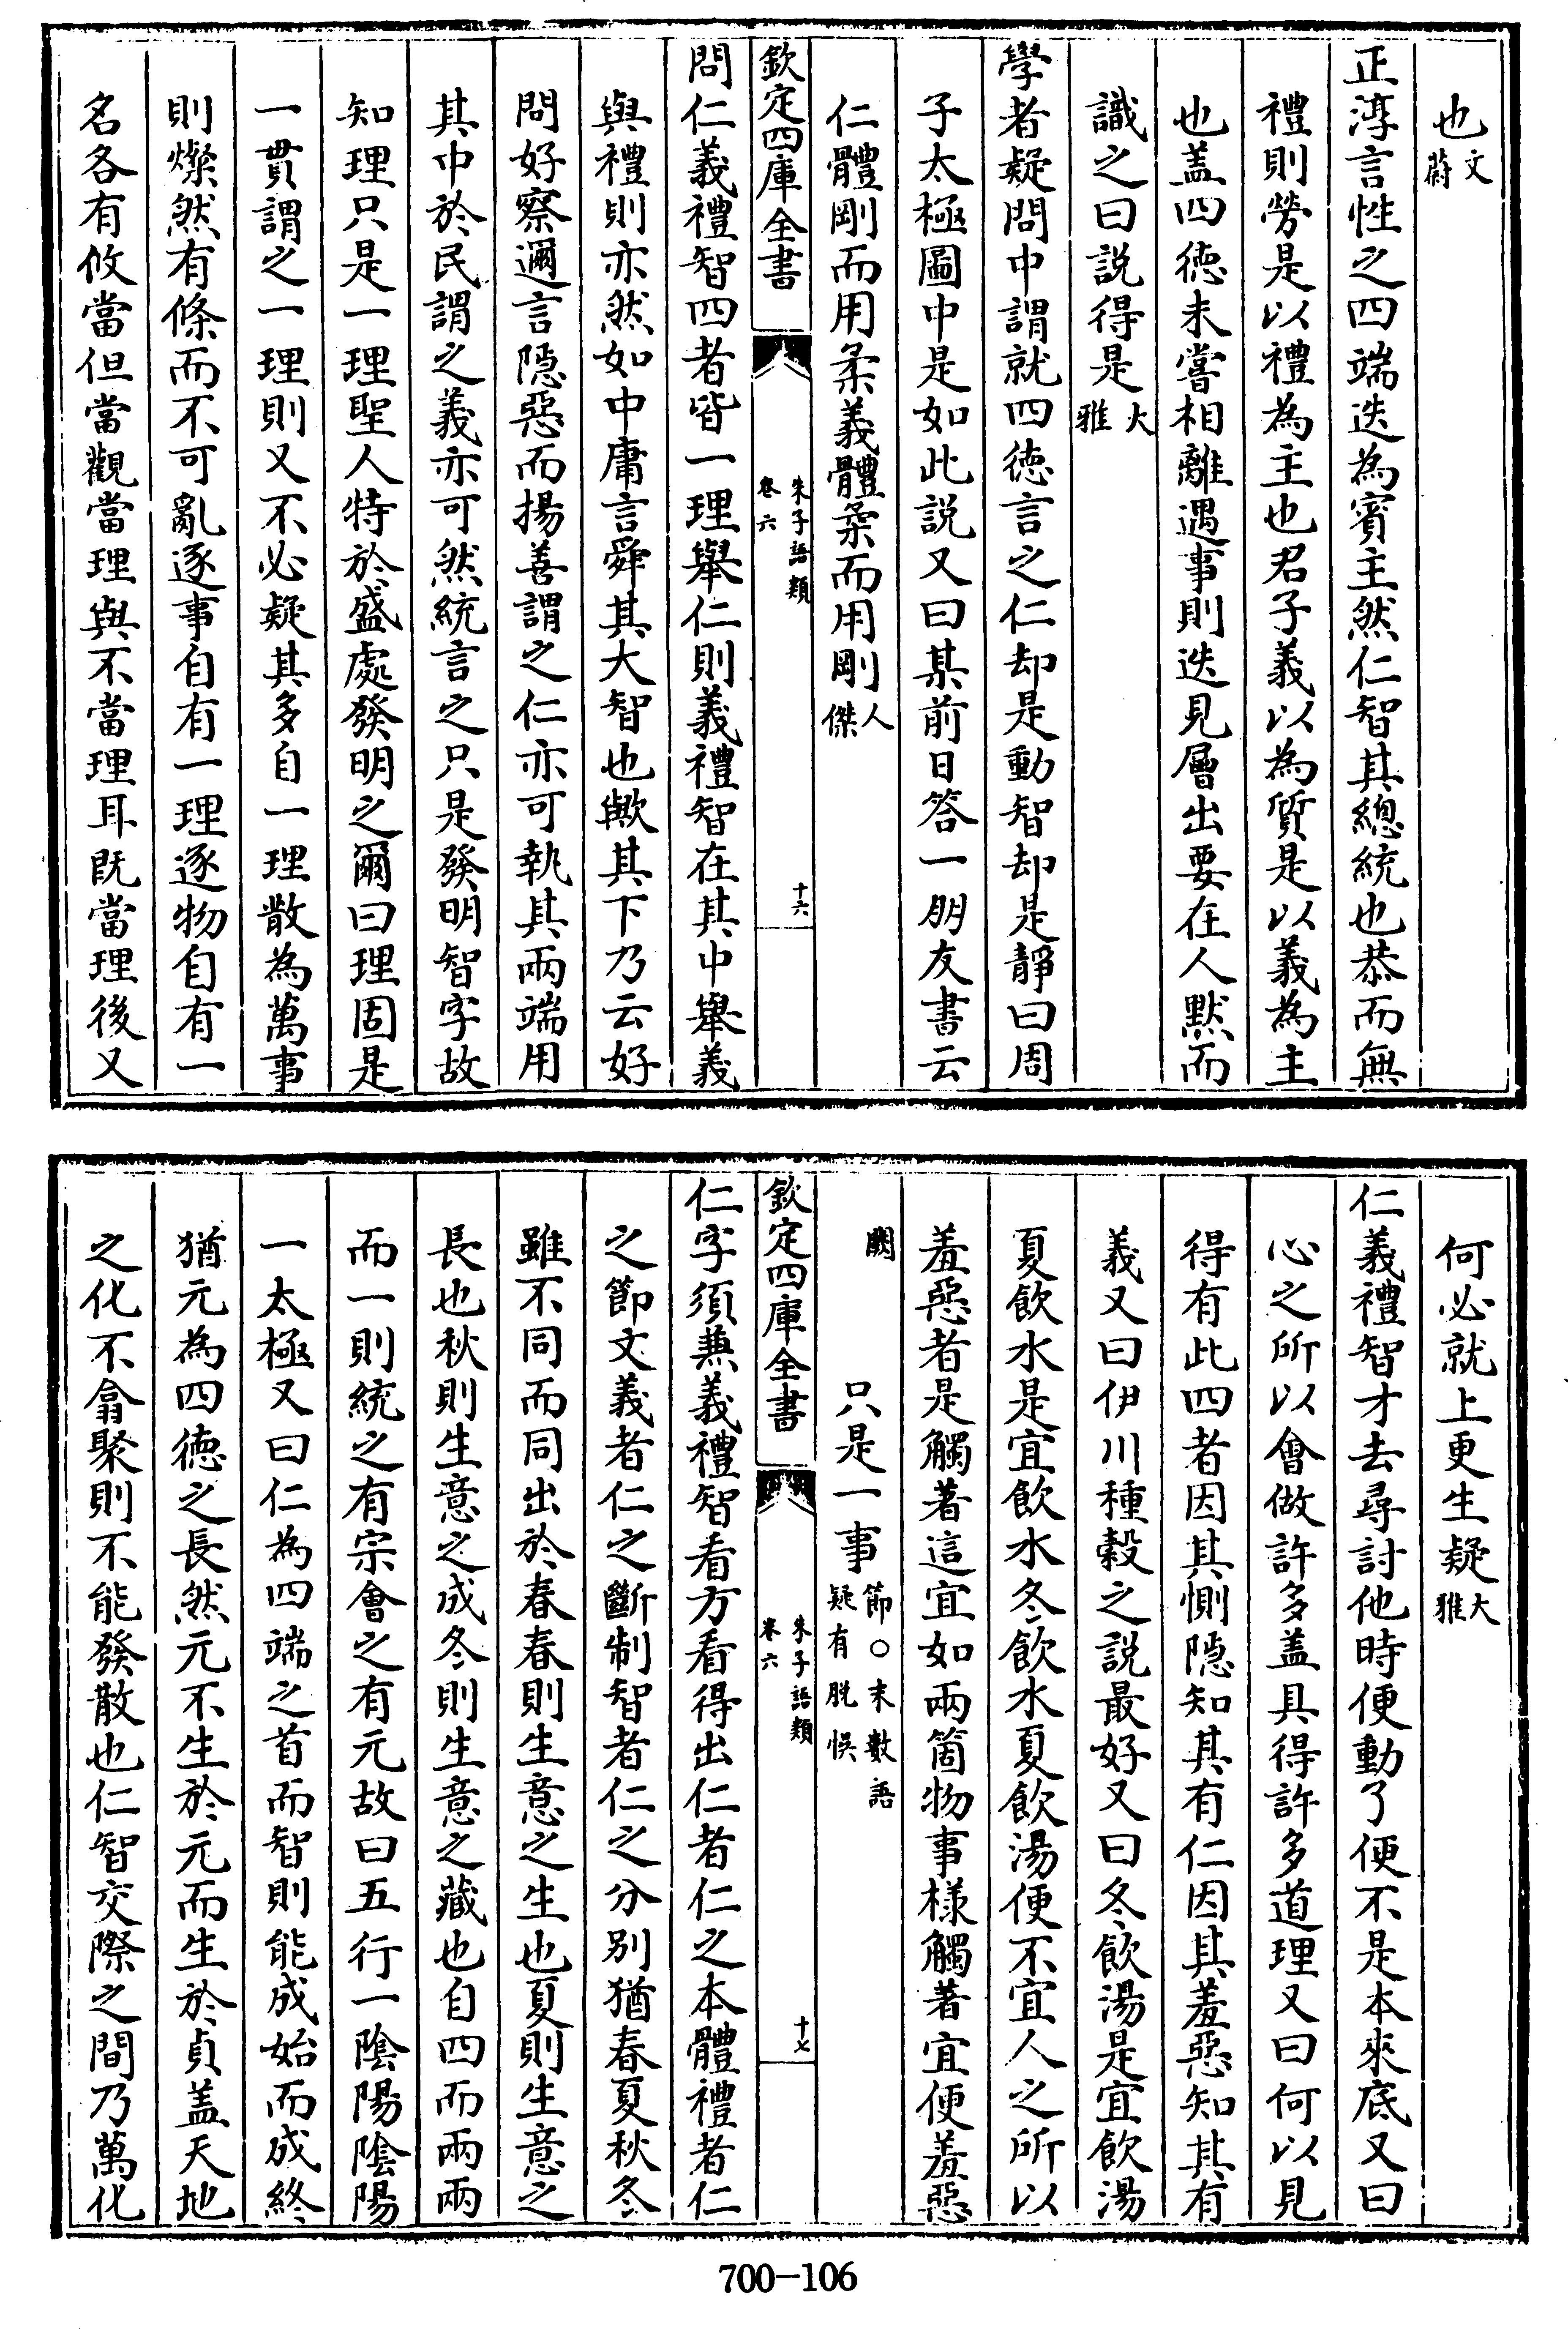 也文蔚
正淳言性之四端迭為賓主然仁智其總統也恭而無
禮則勞是以禮為主也君子義以為質是以義為主
也盖四徳未嘗相離遇事則迭見層出要在人黙而
識之曰説得是大雅
學者疑問中謂就四徳言之仁却是動智却是靜曰周
子太極圖中是如此説又曰某前日答一朋友書云
仁體剛而用柔義體柔而用剛人傑
欽定四庫全書
朱子語類
卷六
十六
問仁義禮智四者皆一理舉仁則義禮智在其中舉義
與禮則亦然如中庸言舜其大智也歟其下乃云好
問好察邇言隠惡而揚善謂之仁亦可執其兩端用
其中於民謂之義亦可然統言之只是發明智字故
知理只是一理聖人特於盛處發明之爾曰理固是
一貫謂之一理則又不必疑其多自一理散為萬事
則燦然有條而不可亂逐事自有一理逐物自有一
名各有攸當但當觀當理與不當理耳既當理後又
何必就上更生疑大雅
仁義禮智才去尋討他時便動了便不是本來底又曰
心之所以會做許多盖具得許多道理又曰何以見
得有此四者因其惻隠知其有仁因其羞惡知其有
義又曰伊川種穀之説最好又曰冬飲湯是宜飲湯
夏飲水是宜飲水冬飲水夏飲湯便不宜人之所以
羞惡者是觸著這宜如兩箇物事様觸著宜便羞惡
闕 只是一事節○末數語疑有脱悞
欽定四庫全書
朱子語類
卷六
十七
仁字須兼義禮智看方看得出仁者仁之本體禮者仁
之節文義者仁之斷制智者仁之分别猶春夏秋冬
雖不同而同出於春春則生意之生也夏則生意之
長也秋則生意之成冬則生意之藏也自四而兩兩
而一則統之有宗會之有元故曰五行一陰陽陰陽
一太極又曰仁為四端之首而智則能成始而成終
猶元為四徳之長然元不生於元而生於貞盖天地
之化不翕聚則不能發散也仁智交際之間乃萬化
700-106